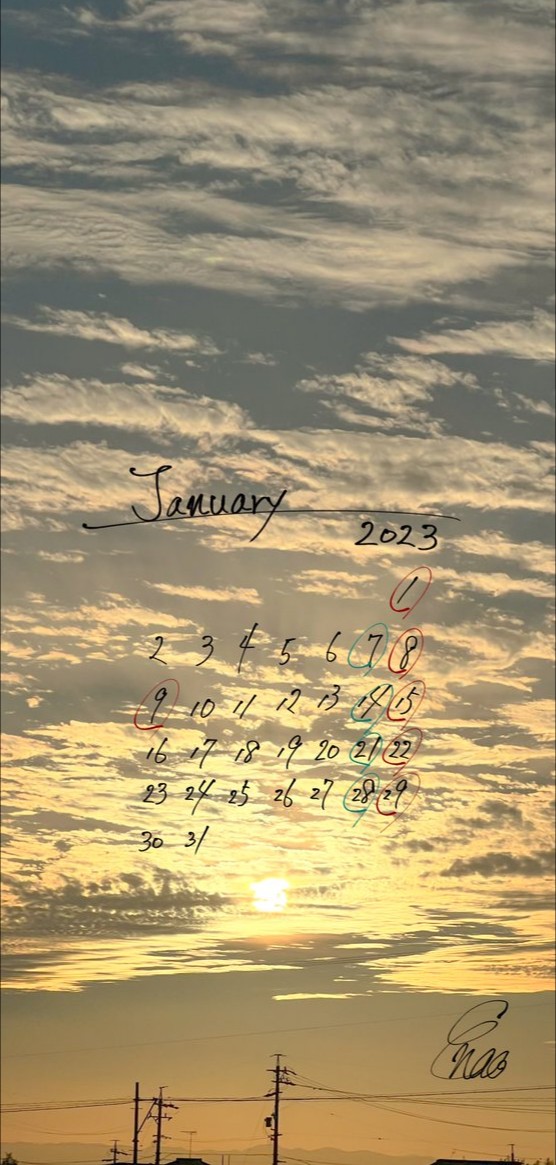 January
2023
1
2 3 4 5 6 7 8
9 10 11 12 13 14 15
16 17 18 19 20 21 22
23 24 25 26 27 28 29
30 31